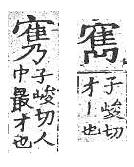 子峻切
才丨也
子峻切人
中最才也